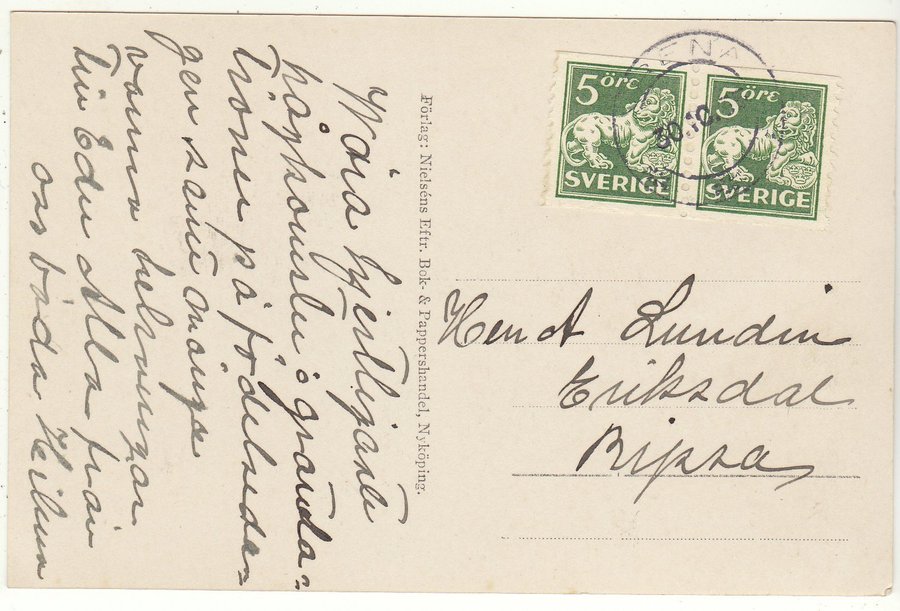 Wåra hjertligaste
högkomstu gratula=
tioner på födelseda=
gen samt många
varma hälsningar
till Eder Alla från
oss båda
Förlag: Nielséns Eftr. Bok- & Pappershandel, Nyköping.
5 öre
SVERIGE
5 öre
SVERIGE
ENA
30.10.
Hen A Lundin
Eriksdal
Ripsa